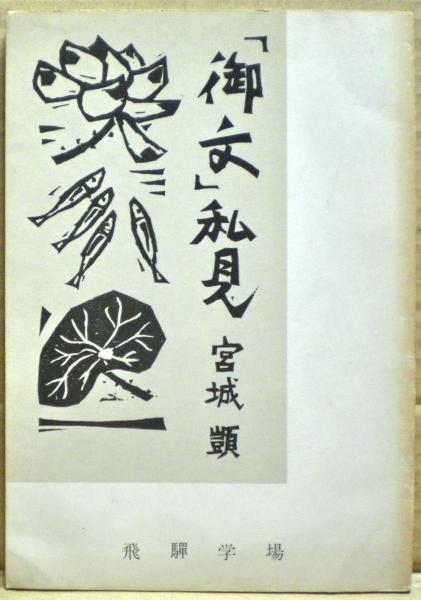 「御文」私見
宮城顗
飛驒学場